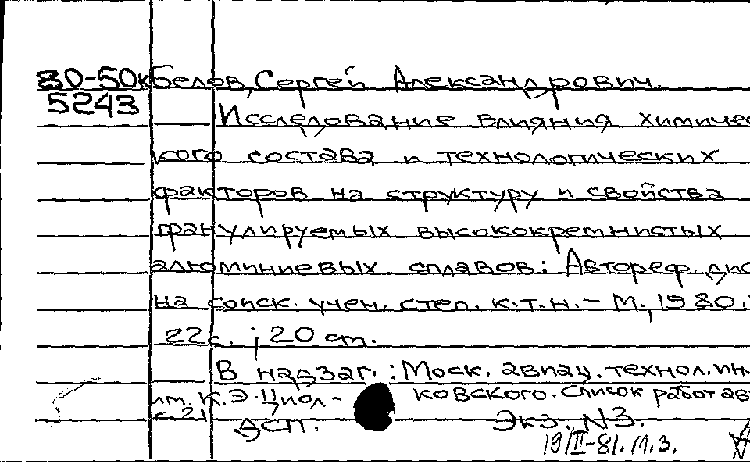 80-50к Белов, Сергей Александрович.
5243 Исследование влияния химичес
кого состава и технологических
факторов на структуру и свойства
гранулируемых высококремнистых
алюминиевых сплавов: Автореф. дис
на соиск. учен. степ. к.т.н. - М., 1980.
22с.; 20 см.
В надзаг.: Моск. авиац. технол. ин
им. К.Э. Циол- ковского. Список работ ав
с. 21
ДСП. Экз. N3.
19/II-81.